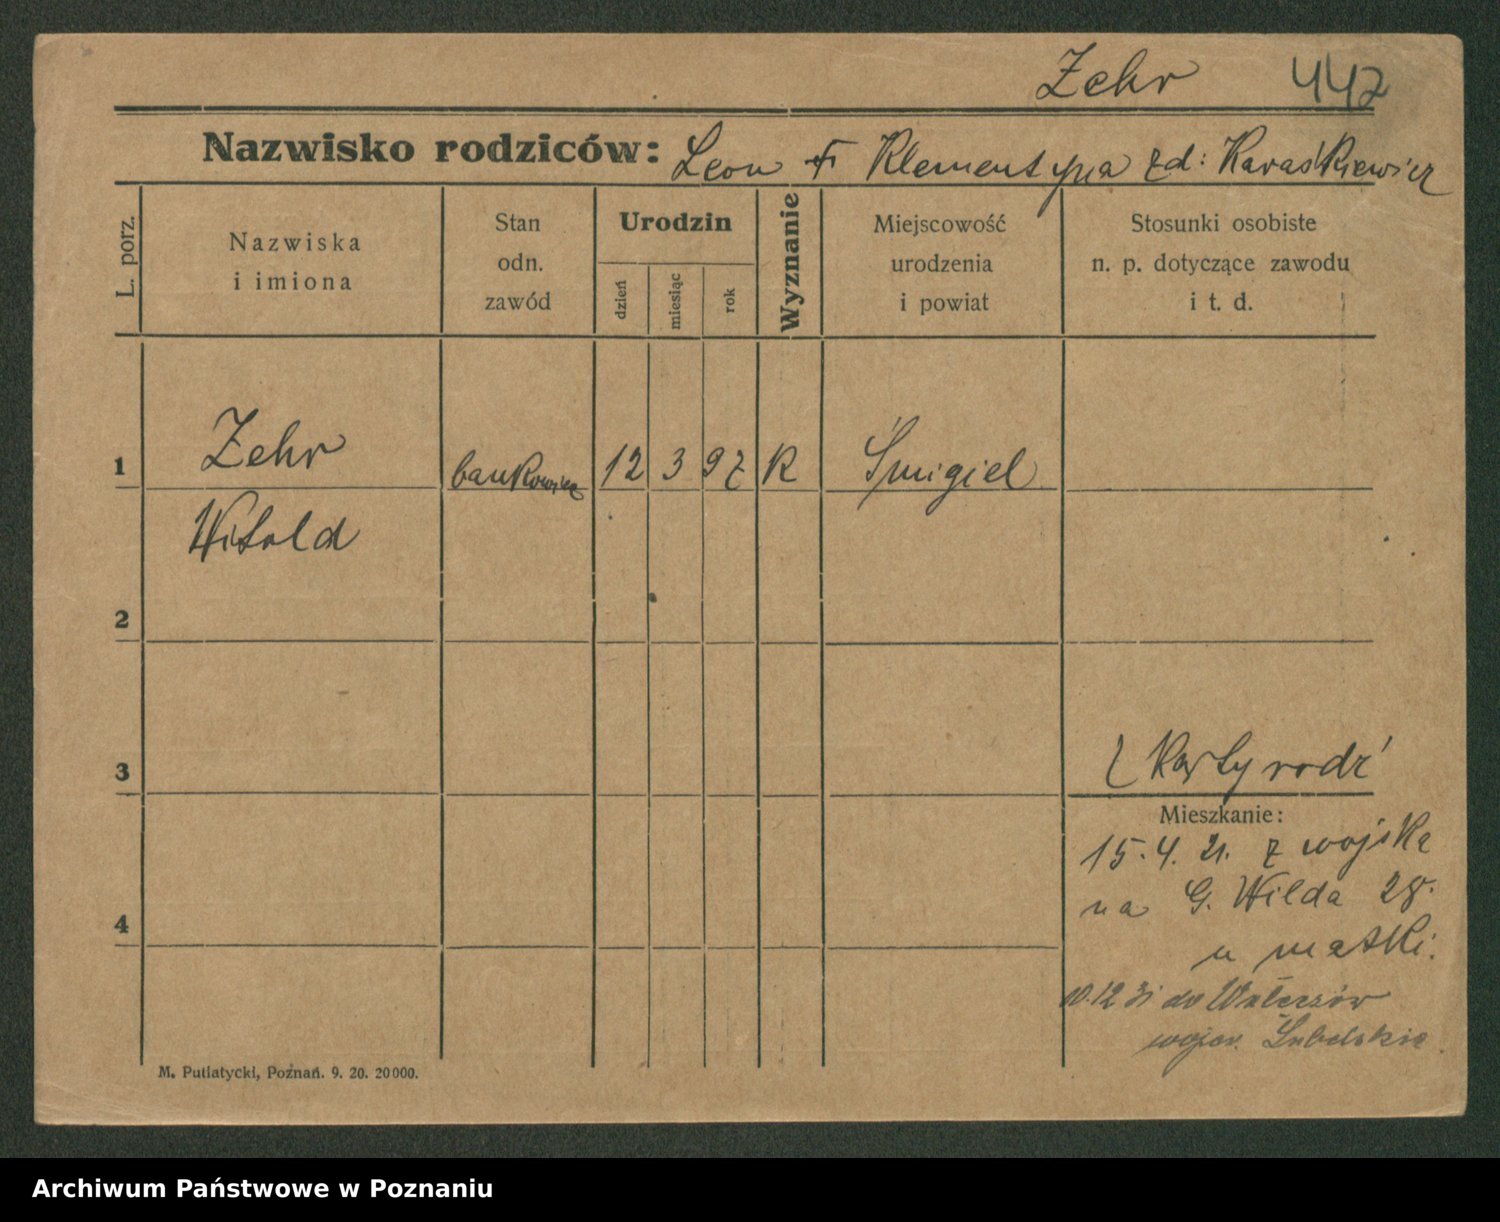 Zehr 442
Nazwisko rodziców: Leon + Klementyna zd: Karaśkiewicz
L. porz.
Nazwiska
i imiona
Stan
odn.
zawód
Urodzin
dzień
miesiąc
rok
Wyznanie
Miejscowość
urodzenia
i powiat
Stosunki osobiste
n. p. dotyczące zawodu
i t. d.
1 Zehr bankowiec 12 3 97 K Śmigiel
Witold
2
3
Z karty rodź
Mieszkanie:
15.4.21. z wojska
na G. Wilda 28.
4
u matki.
10.12 31 do
wojew. Lubelskie.
M. Putiatycki, Poznań. 9. 20. 20000.
Archiwum Państwowe w Poznaniu